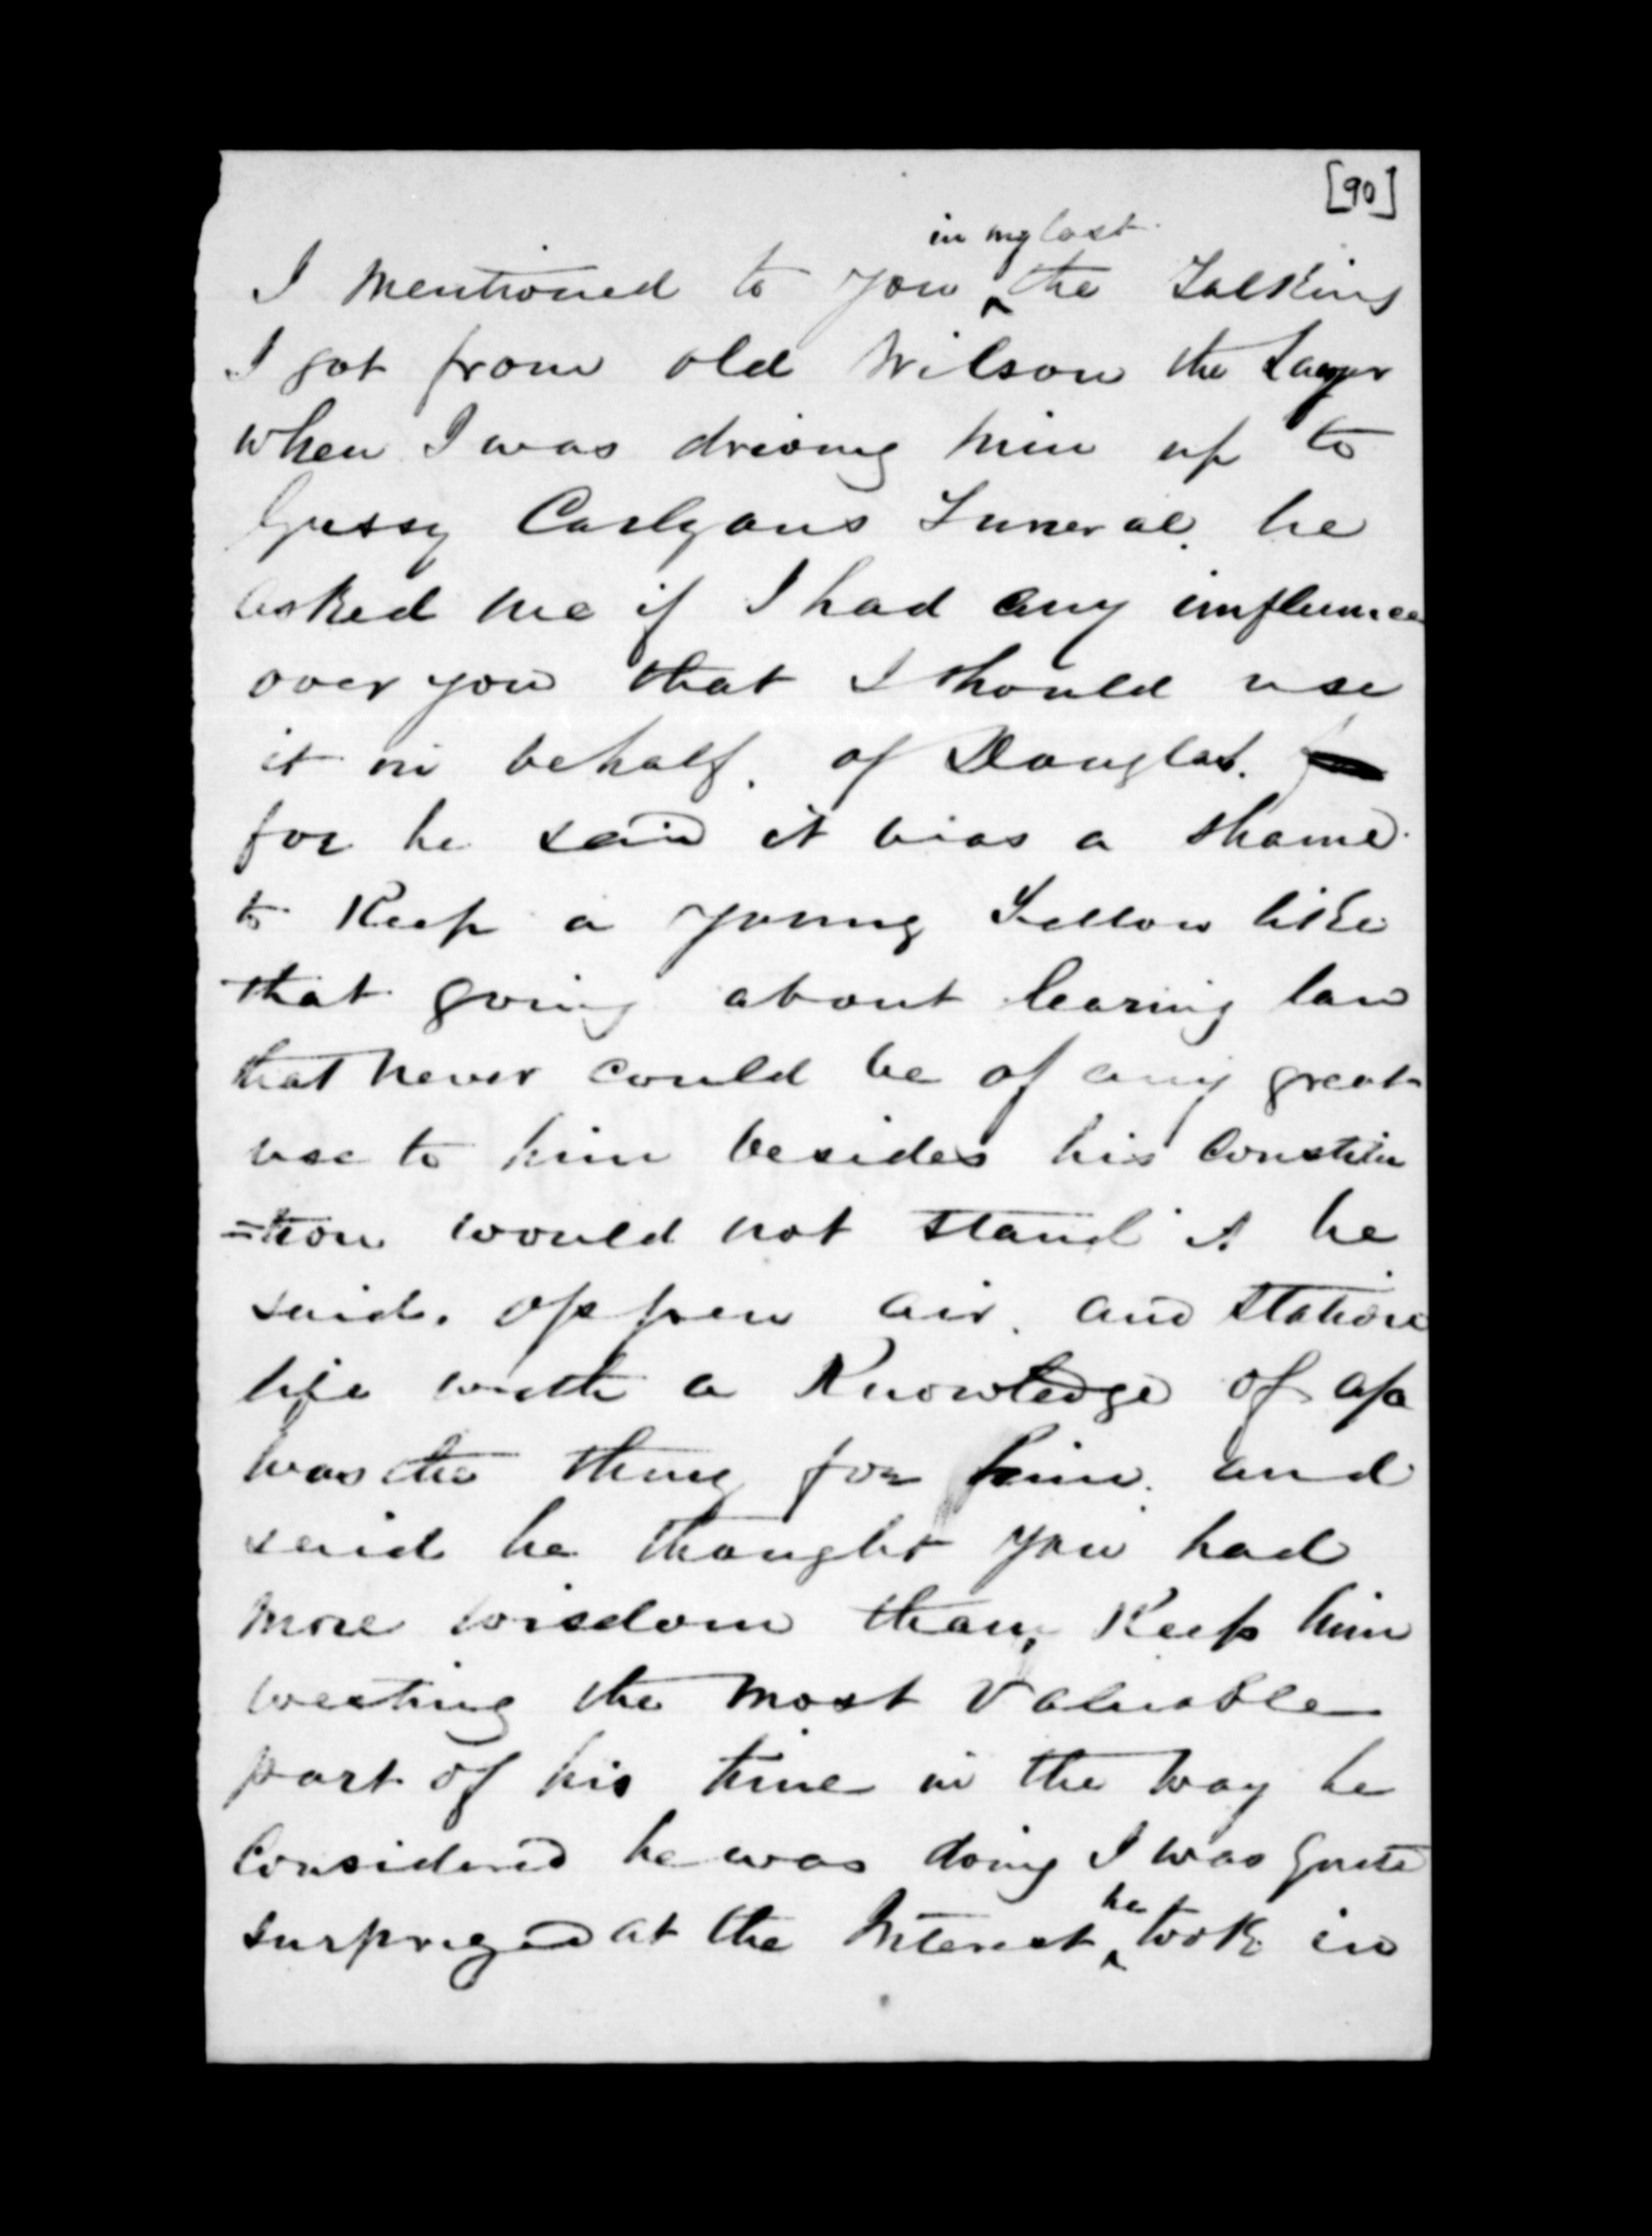 [90]
in my last
I mentioned to you ^ the Talking
I got from old Wilson the Lawyer
when I was driving him up to
Gussy Carlyons Funeral. he
asked me if I had any influence
over you that I should use
it in behalf. of Douglas.
for he said it was a shame
to Keep a young Fellow like
that going about learing law
that never could be of any great
use to him besides his Constitu
=tion would not stand it he
said. oppen air. and Station
life with a Knowledge of
was the thing for him. and
said he thought you had
more wisdom than, Keep him
westing the most valuable
part of his time in the way he
Considered he was doing I was Quite
he
surprized at the Interest ^ took in